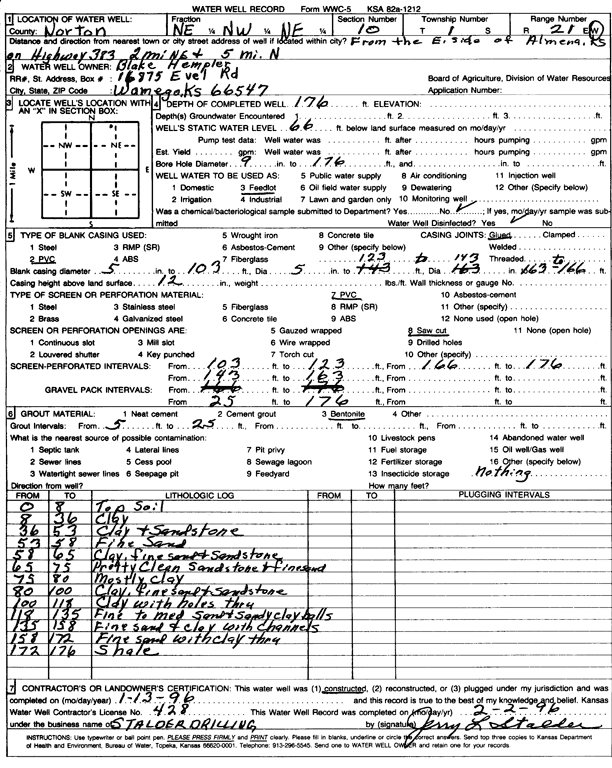 WATER WELL RECORD Form WWC-5 KSA 82a-1212
1 LOCATION OF WATER WELL: Fraction Section Number Township Number Range Number
County: Norton NE ¼ NW ¼ NE ¼ 10 T 1 S R 21 E/W
Distance and direction from nearest town or city street address of well if located within city? From the E. side of Almena, Ks
on Highway 383 2 mi NE & 5 mi. N
2 WATER WELL OWNER: Blake Hemples
RR#, St. Address, Box #: 16375 Evel Rd Board of Agriculture, Division of Water Resources
City, State, ZIP Code Wamego, Ks 66547 Application Number:
3 LOCATE WELL'S LOCATION WITH AN "X" IN SECTION BOX:
N
NW NE
W E
SW SE
S
1 Mile
4 DEPTH OF COMPLETED WELL 176 ft. ELEVATION:
Depth(s) Groundwater Encountered 1. ft. 2. ft. 3. ft.
WELL'S STATIC WATER LEVEL 66 ft. below land surface measured on mo/day/yr
Pump test data: Well water was ft. after hours pumping gpm
Est. Yield gpm: Well water was ft. after hours pumping gpm
Bore Hole Diameter 9 in. to 176 ft., and in. to ft.
WELL WATER TO BE USED AS: 5 Public water supply 8 Air conditioning 11 Injection well
1 Domestic 3 Feedlot 6 Oil field water supply 9 Dewatering 12 Other (Specify below)
2 Irrigation 4 Industrial 7 Lawn and garden only 10 Monitoring well
Was a chemical/bacteriological sample submitted to Department? Yes No ✓; If yes, mo/day/yr sample was sub-
mitted Water Well Disinfected? Yes ✓ No
5 TYPE OF BLANK CASING USED: 5 Wrought iron 8 Concrete tile CASING JOINTS: Glued Clamped
1 Steel 3 RMP (SR) 6 Asbestos-Cement 9 Other (specify below) Welded
2 PVC 4 ABS 7 Fiberglass 123 to 143 Threaded to
Blank casing diameter 5 in. to 103 ft., Dia 5 in. to 143 ft., Dia 163 in. to 163-166 ft.
Casing height above land surface 12 in., weight lbs./ft. Wall thickness or gauge No.
TYPE OF SCREEN OR PERFORATION MATERIAL: 7 PVC 10 Asbestos-cement
1 Steel 3 Stainless steel 5 Fiberglass 8 RMP (SR) 11 Other (specify)
2 Brass 4 Galvanized steel 6 Concrete tile 9 ABS 12 None used (open hole)
SCREEN OR PERFORATION OPENINGS ARE: 5 Gauzed wrapped 8 Saw cut 11 None (open hole)
1 Continuous slot 3 Mill slot 6 Wire wrapped 9 Drilled holes
2 Louvered shutter 4 Key punched 7 Torch cut 10 Other (specify)
SCREEN-PERFORATED INTERVALS: From 103 ft. to 123 ft., From 166 ft. to 176 ft.
From 143 ft. to 163 ft., From ft. to ft.
GRAVEL PACK INTERVALS: From ft. to ft., From ft. to ft.
From 25 ft. to 176 ft., From ft. to ft.
6 GROUT MATERIAL: 1 Neat cement 2 Cement grout 3 Bentonite 4 Other
Grout Intervals: From 5 ft. to 25 ft., From ft. to ft., From ft. to ft.
What is the nearest source of possible contamination: 10 Livestock pens 14 Abandoned water well
1 Septic tank 4 Lateral lines 7 Pit privy 11 Fuel storage 15 Oil well/Gas well
2 Sewer lines 5 Cess pool 8 Sewage lagoon 12 Fertilizer storage 16 Other (specify below)
3 Watertight sewer lines 6 Seepage pit 9 Feedyard 13 Insecticide storage Nothing
Direction from well? How many feet?
FROM TO LITHOLOGIC LOG FROM TO PLUGGING INTERVALS
0 8 Top Soil
8 36 Clay
36 53 Clay + Sandstone
53 58 Fine Sand
58 65 Clay, fine sand + Sandstone
65 75 Pretty Clean Sandstone + fine sand
75 80 Mostly clay
80 100 Clay, fine sand + Sandstone
100 118 Clay with holes thru
118 135 Fine to med sand + Sandy clay balls
135 158 Fine sand + clay with channels
158 172 Fine sand with clay thru
172 176 Shale
7 CONTRACTOR'S OR LANDOWNER'S CERTIFICATION: This water well was (1) constructed, (2) reconstructed, or (3) plugged under my jurisdiction and was
completed on (mo/day/year) 1-13-96 and this record is true to the best of my knowledge and belief. Kansas
Water Well Contractor's License No. 428 This Water Well Record was completed on (mo/day/yr) 2-2-96
under the business name of STALDER DRILLING by (signature) Jerry L Stalder
INSTRUCTIONS: Use typewriter or ball point pen. PLEASE PRESS FIRMLY and PRINT clearly. Please fill in blanks, underline or circle the correct answers. Send top three copies to Kansas Department
of Health and Environment, Bureau of Water, Topeka, Kansas 66620-0001. Telephone: 913-296-5545. Send one to WATER WELL OWNER and retain one for your records.